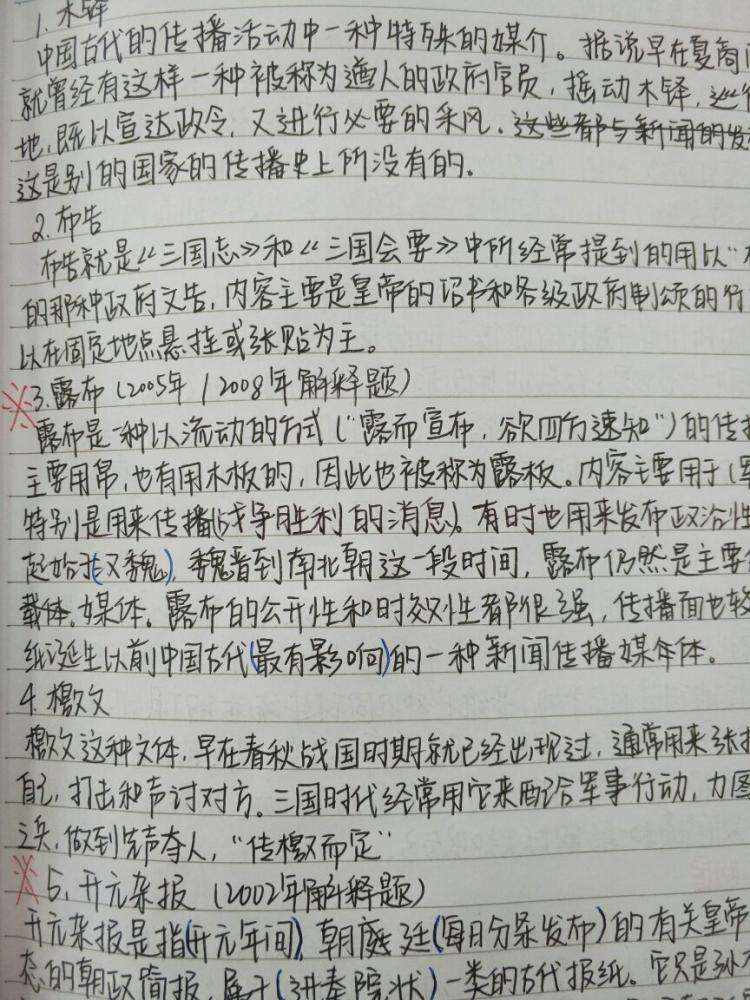 1. 木铎
中国古代的传播活动中一种特殊的媒介。据说早在夏商
就曾经有这样一种被称为遒人的政府官员，摇动木铎，巡行
地，既以宣达政令，又进行必要的采风。这些都与新闻的发
这是别的国家的传播史上所没有的。
2. 布告
布告就是《三国志》和《三国会要》中所经常提到的用以“
的那种政府文告，内容主要是皇帝的诏书和各级政府制颁的行
以在固定地点悬挂或张贴为主。
※3. 露布（2005年/2008年解释题）
露布是一种以流动的方式（“露而宣布，欲四方速知”）的传
主要用帛，也有用木板的，因此也被称为露板。内容主要用于（军
特别是用来传播（战争胜利的消息）。有时也用来发布政治性
起始于（汉魏），魏晋到南北朝这一段时间，露布仍然是主要
载体。媒体。露布的公开性和时效性都很强，传播面也较
纸诞生以前中国古代（最有影响）的一种新闻传播媒体。
4. 檄文
檄文这种文体，早在春秋战国时期就已经出现过，通常用来张扬
自己，打击和声讨对方。三国时代经常用它来配合军事行动，力图
之兵，做到先声夺人，“传檄而定”
※5. 开元杂报（2002年解释题）
开元杂报是指（开元年间），朝庭廷（每日分条发布）的有关皇帝
态的朝政简报，属于（进奏院状）一类的古代报纸。它只是孙